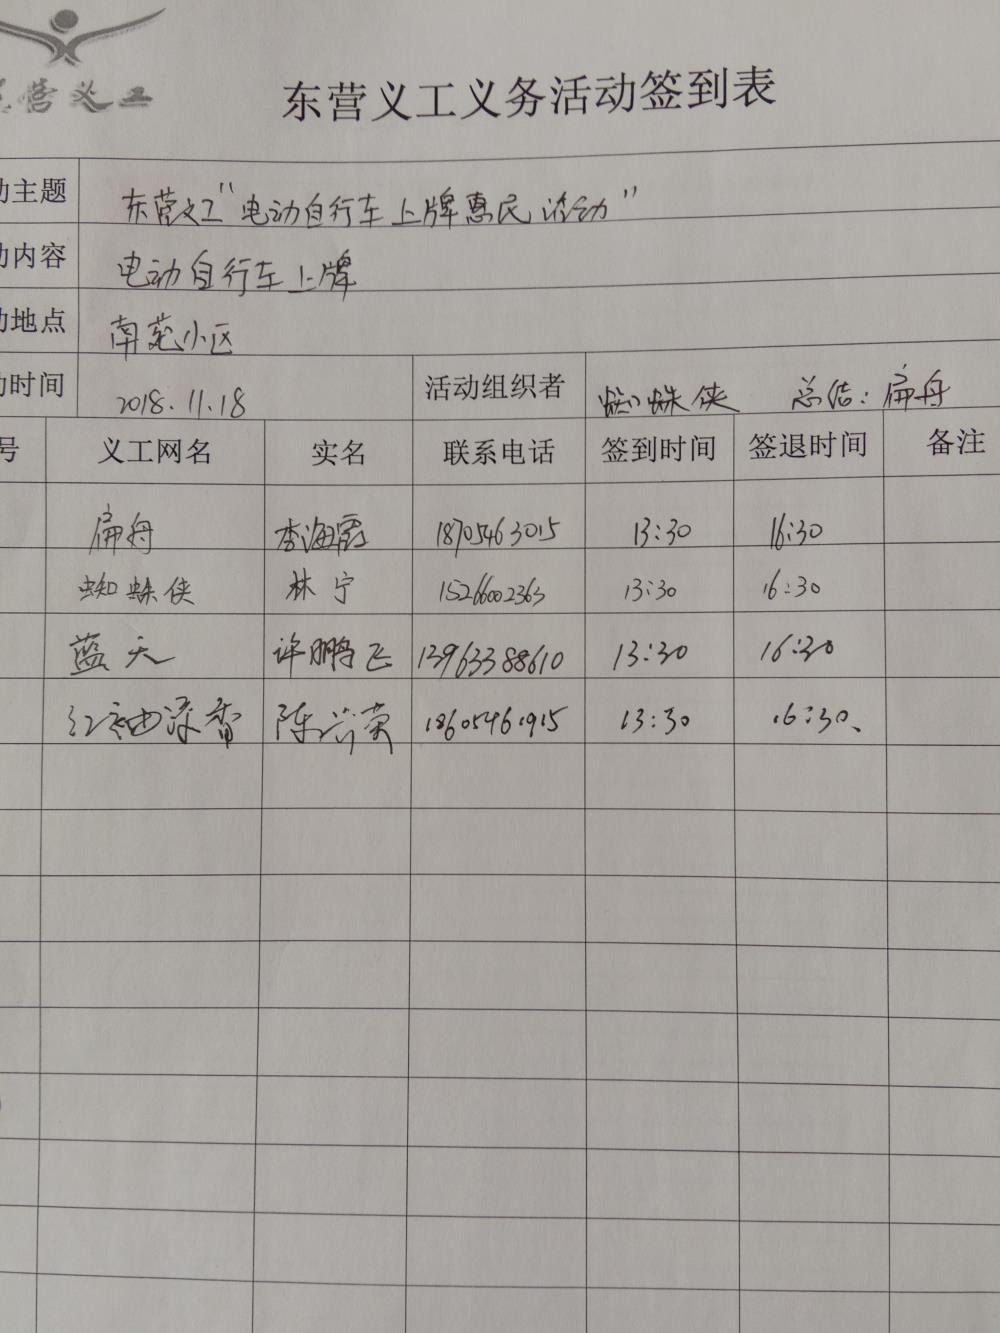 营义工
东营义工义务活动签到表
动主题 东营义工“电动自行车上牌惠民活动”
动内容 电动自行车上牌
动地点 南苑小区
动时间 2018.11.18 活动组织者 蜘蛛侠 总结：扁舟
号 义工网名 实名 联系电话 签到时间 签退时间 备注
扁舟 李海霞 18705463015 13:30 16:30
蜘蛛侠 林宁 15266002363 13:30 16:30
蓝天 许鹏飞 13963388610 13:30 16:30
红袖添香 陈兴荣 18605461915 13:30 16:30、